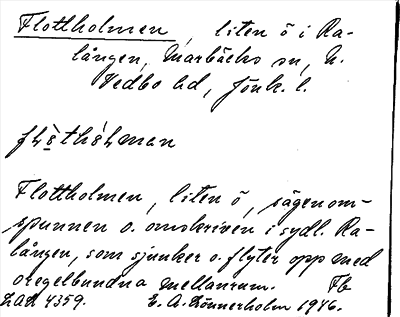 Flottholmen, liten ö i Ra-
lången, Marbäcks sn, N.
Vedbo hd, Jönk. l.
Flottholmen, liten ö, sägenom-
spunnen o. omskriven i sydl. Ra-
lången, som sjunker o. flyter opp med
oregelbundna mellanrum. Fb
LAL 4359. E. A. Lönnerholm 1946.